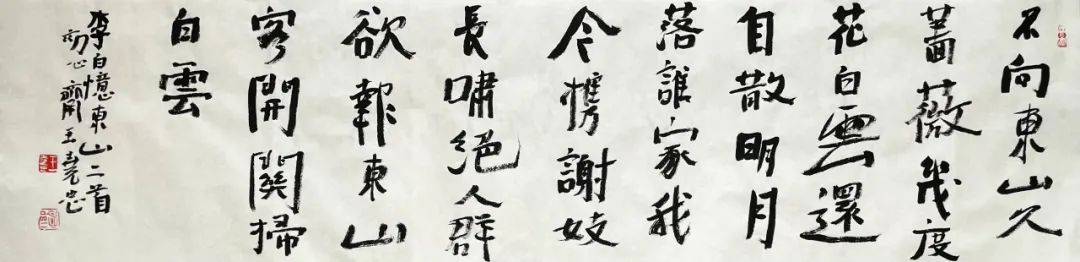 不向東山久
薔薇幾度
花白雲還
自散明月
落誰家我
今攜謝妓
長嘯絕人群
欲報東山
客開關掃
白雲
李白憶東山二首
心齋王堯